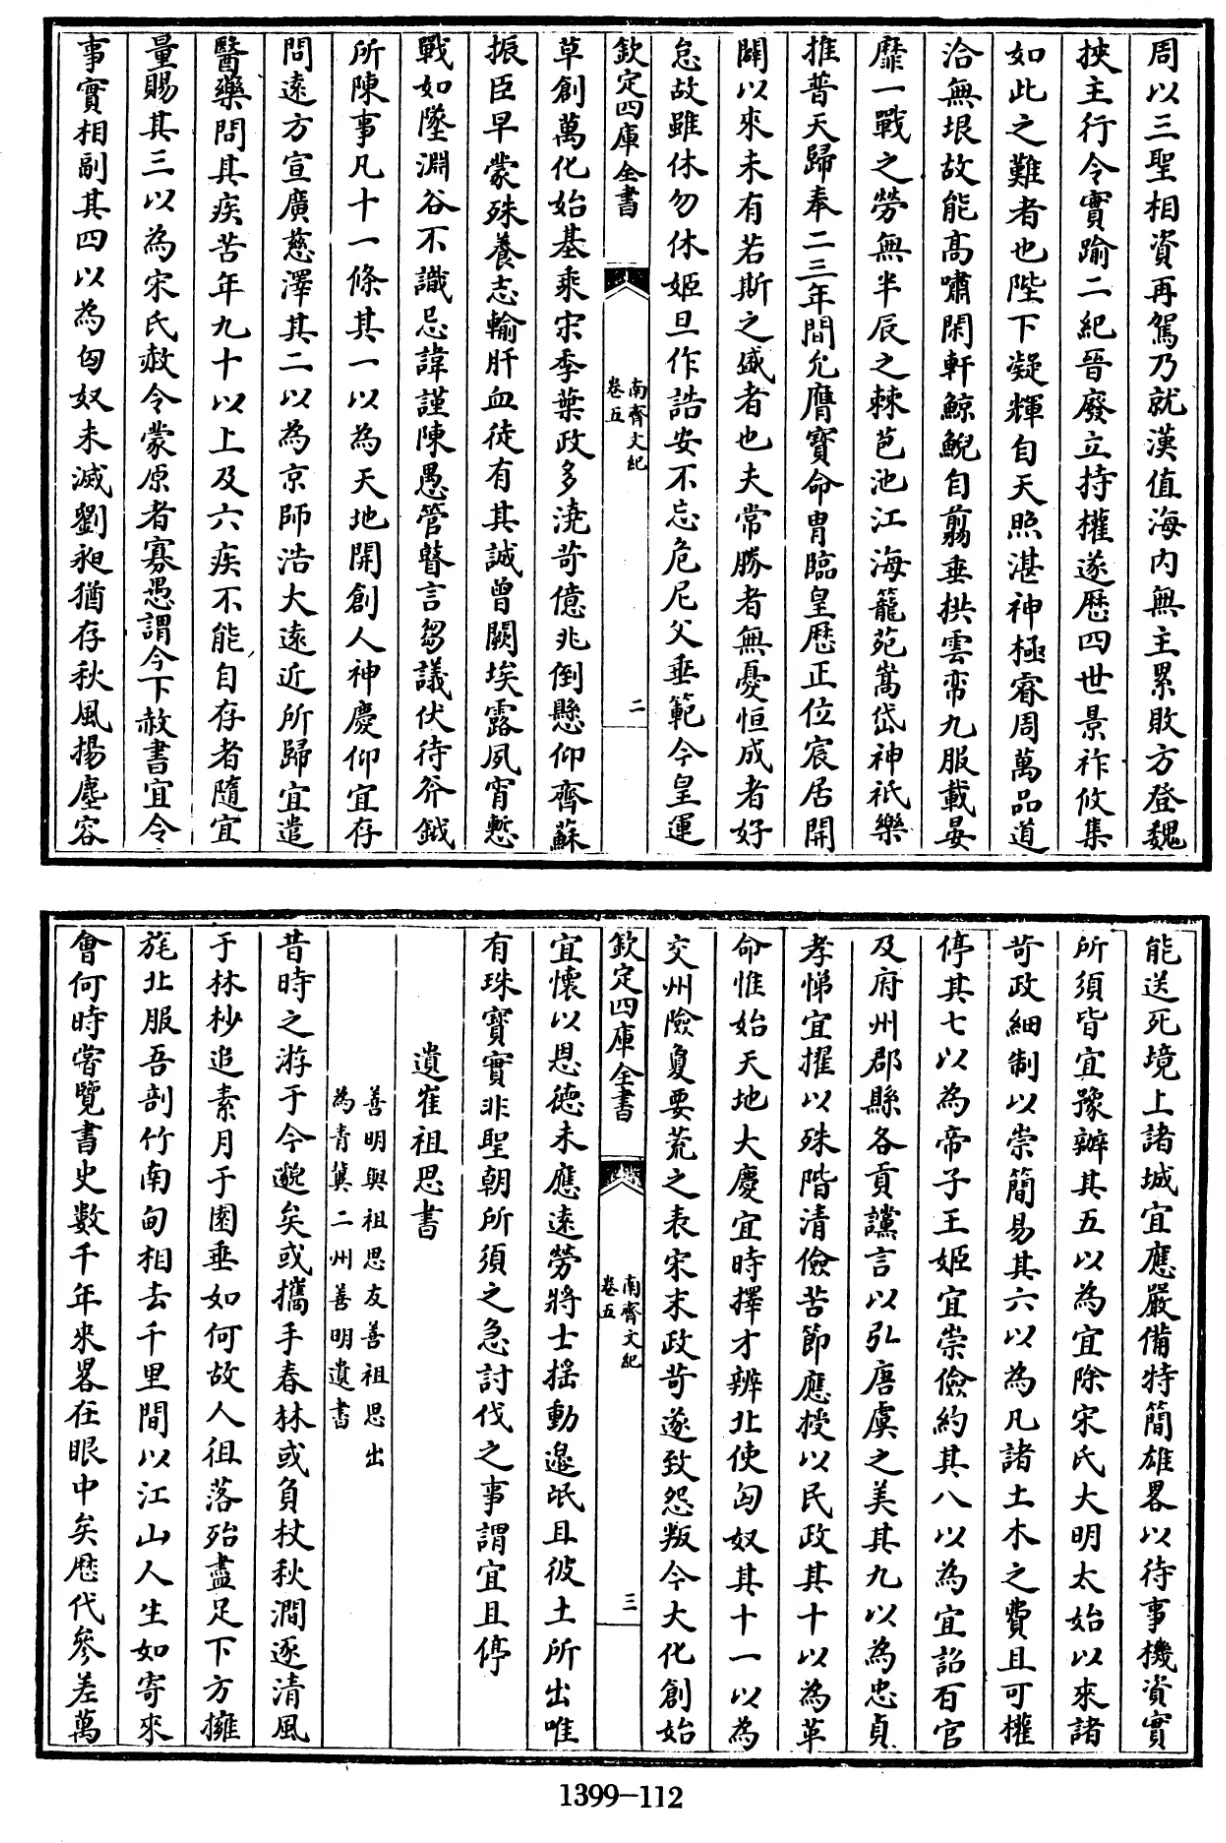 周以三聖相資再駕乃就漢值海内無主累敗方登魏
挾主行令實踰二紀晉廢立持權遂歴四世景祚攸集
如此之難者也陛下凝輝自天照湛神極睿周萬品道
洽無垠故能高嘯閑軒鯨鯢自翦垂拱雲帟九服載晏
靡一戰之勞無半辰之棘苞池江海籠苑嵩岱神祇樂
推普天歸奉二三年間允膺寳命胄臨皇歴正位宸居開
闢以來未有若斯之盛者也夫常勝者無憂恒成者好
怠故雖休勿休姬旦作誥安不忘危尼父垂範今皇運
欽定四庫全書
南齊文紀
卷五
二
草創萬化始基乘宋季葉政多澆苛億兆倒懸仰齊蘇
振臣早蒙殊養志輸肝血徒有其誠曾闕埃露夙宵慙
戰如墜淵谷不識忌諱謹陳愚管瞽言芻議伏待斧鉞
所陳事凡十一條其一以為天地開創人神慶仰宜存
問逺方宣廣慈澤其二以為京師浩大逺近所歸宜遣
醫藥問其疾苦年九十以上及六疾不能自存者隨宜
量賜其三以為宋氏赦令蒙原者寡愚謂今下赦書宜令
事實相副其四以為匈奴未滅劉昶猶存秋風揚塵容
能送死境上諸城宜應嚴備特簡雄畧以待事機資實
所須皆宜豫辦其五以為宜除宋氏大明太始以來諸
苛政細制以崇簡易其六以為凡諸土木之費且可權
停其七以為帝子王姬宜崇儉約其八以為宜詔百官
及府州郡縣各貢讜言以弘唐虞之美其九以為忠貞
孝悌宜擢以殊階清儉苦節應授以民政其十以為革
命惟始天地大慶宜時擇才辨北使匈奴其十一以為
交州險夐要荒之表宋末政苛遂致怨叛今大化創始
欽定四庫全書
南齊文紀
卷五
三
宜懷以恩德未應逺勞將士揺動邉氓且彼土所出唯
有珠寳實非聖朝所須之急討伐之事謂宜且停
遺崔祖思書
善明與祖思友善祖思出
為青冀二州善明遺書
昔時之游于今邈矣或攜手春林或負杖秋澗逐清風
于林杪追素月于園垂如何故人徂落殆盡足下方擁
旄北服吾剖竹南甸相去千里間以江山人生如寄來
會何時嘗覽書史數千年來畧在眼中矣歴代參差萬
1399-112